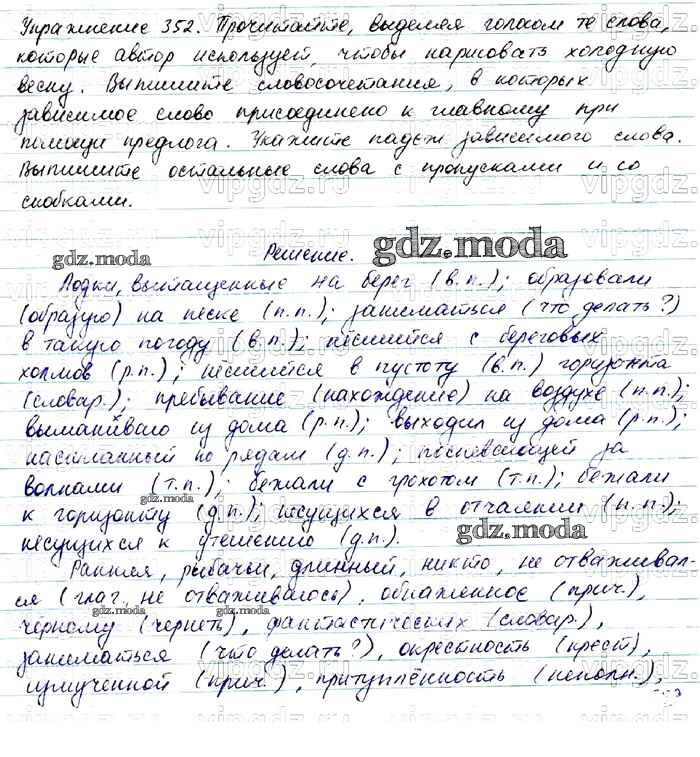 Упражнение 352. Прочитайте, выделяя голосом те слова,
которые автор использует, чтобы нарисовать холодную
весну. Выпишите словосочетания, в которых
зависимое слово присоединено к главному при
помощи предлога. Укажите падеж зависимого слова.
Выпишите остальные слова с пропусками и со
скобками.
Решение.
gdz.moda
gdz.moda
Лодки, вытащенные на берег (в.п.); образовали
(образую) на песке (п.п.); заниматься (что делать?)
в такую погоду (в.п.); несшийся с береговых
холмов (р.п.); несшийся в пустоту (в.п.) горизонта
(словар.); пребывание (нахождение) на воздухе (п.п.);
выманивало из дома (р.п.); выходил из дома (р.п.);
насланный по рядам (д.п.); поспевающей за
волнами (т.п.); бежали с грохотом (т.п.); бежали
gdz.moda
gdz.moda
к горизонту (д.п.); несущихся в отчаянии (п.п.);
gdz.moda
несущихся к утешению (д.п.).
Ранняя, рыбачьи, длинный, никто, не отваживал-
ся (глаг., не отваживалось), обнаженное (прич.),
чёрному (чернеть), фантастических (словар.),
заниматься (что делать?), окрестность (крест),
измученной (прич.), притуплённость (неполн.),